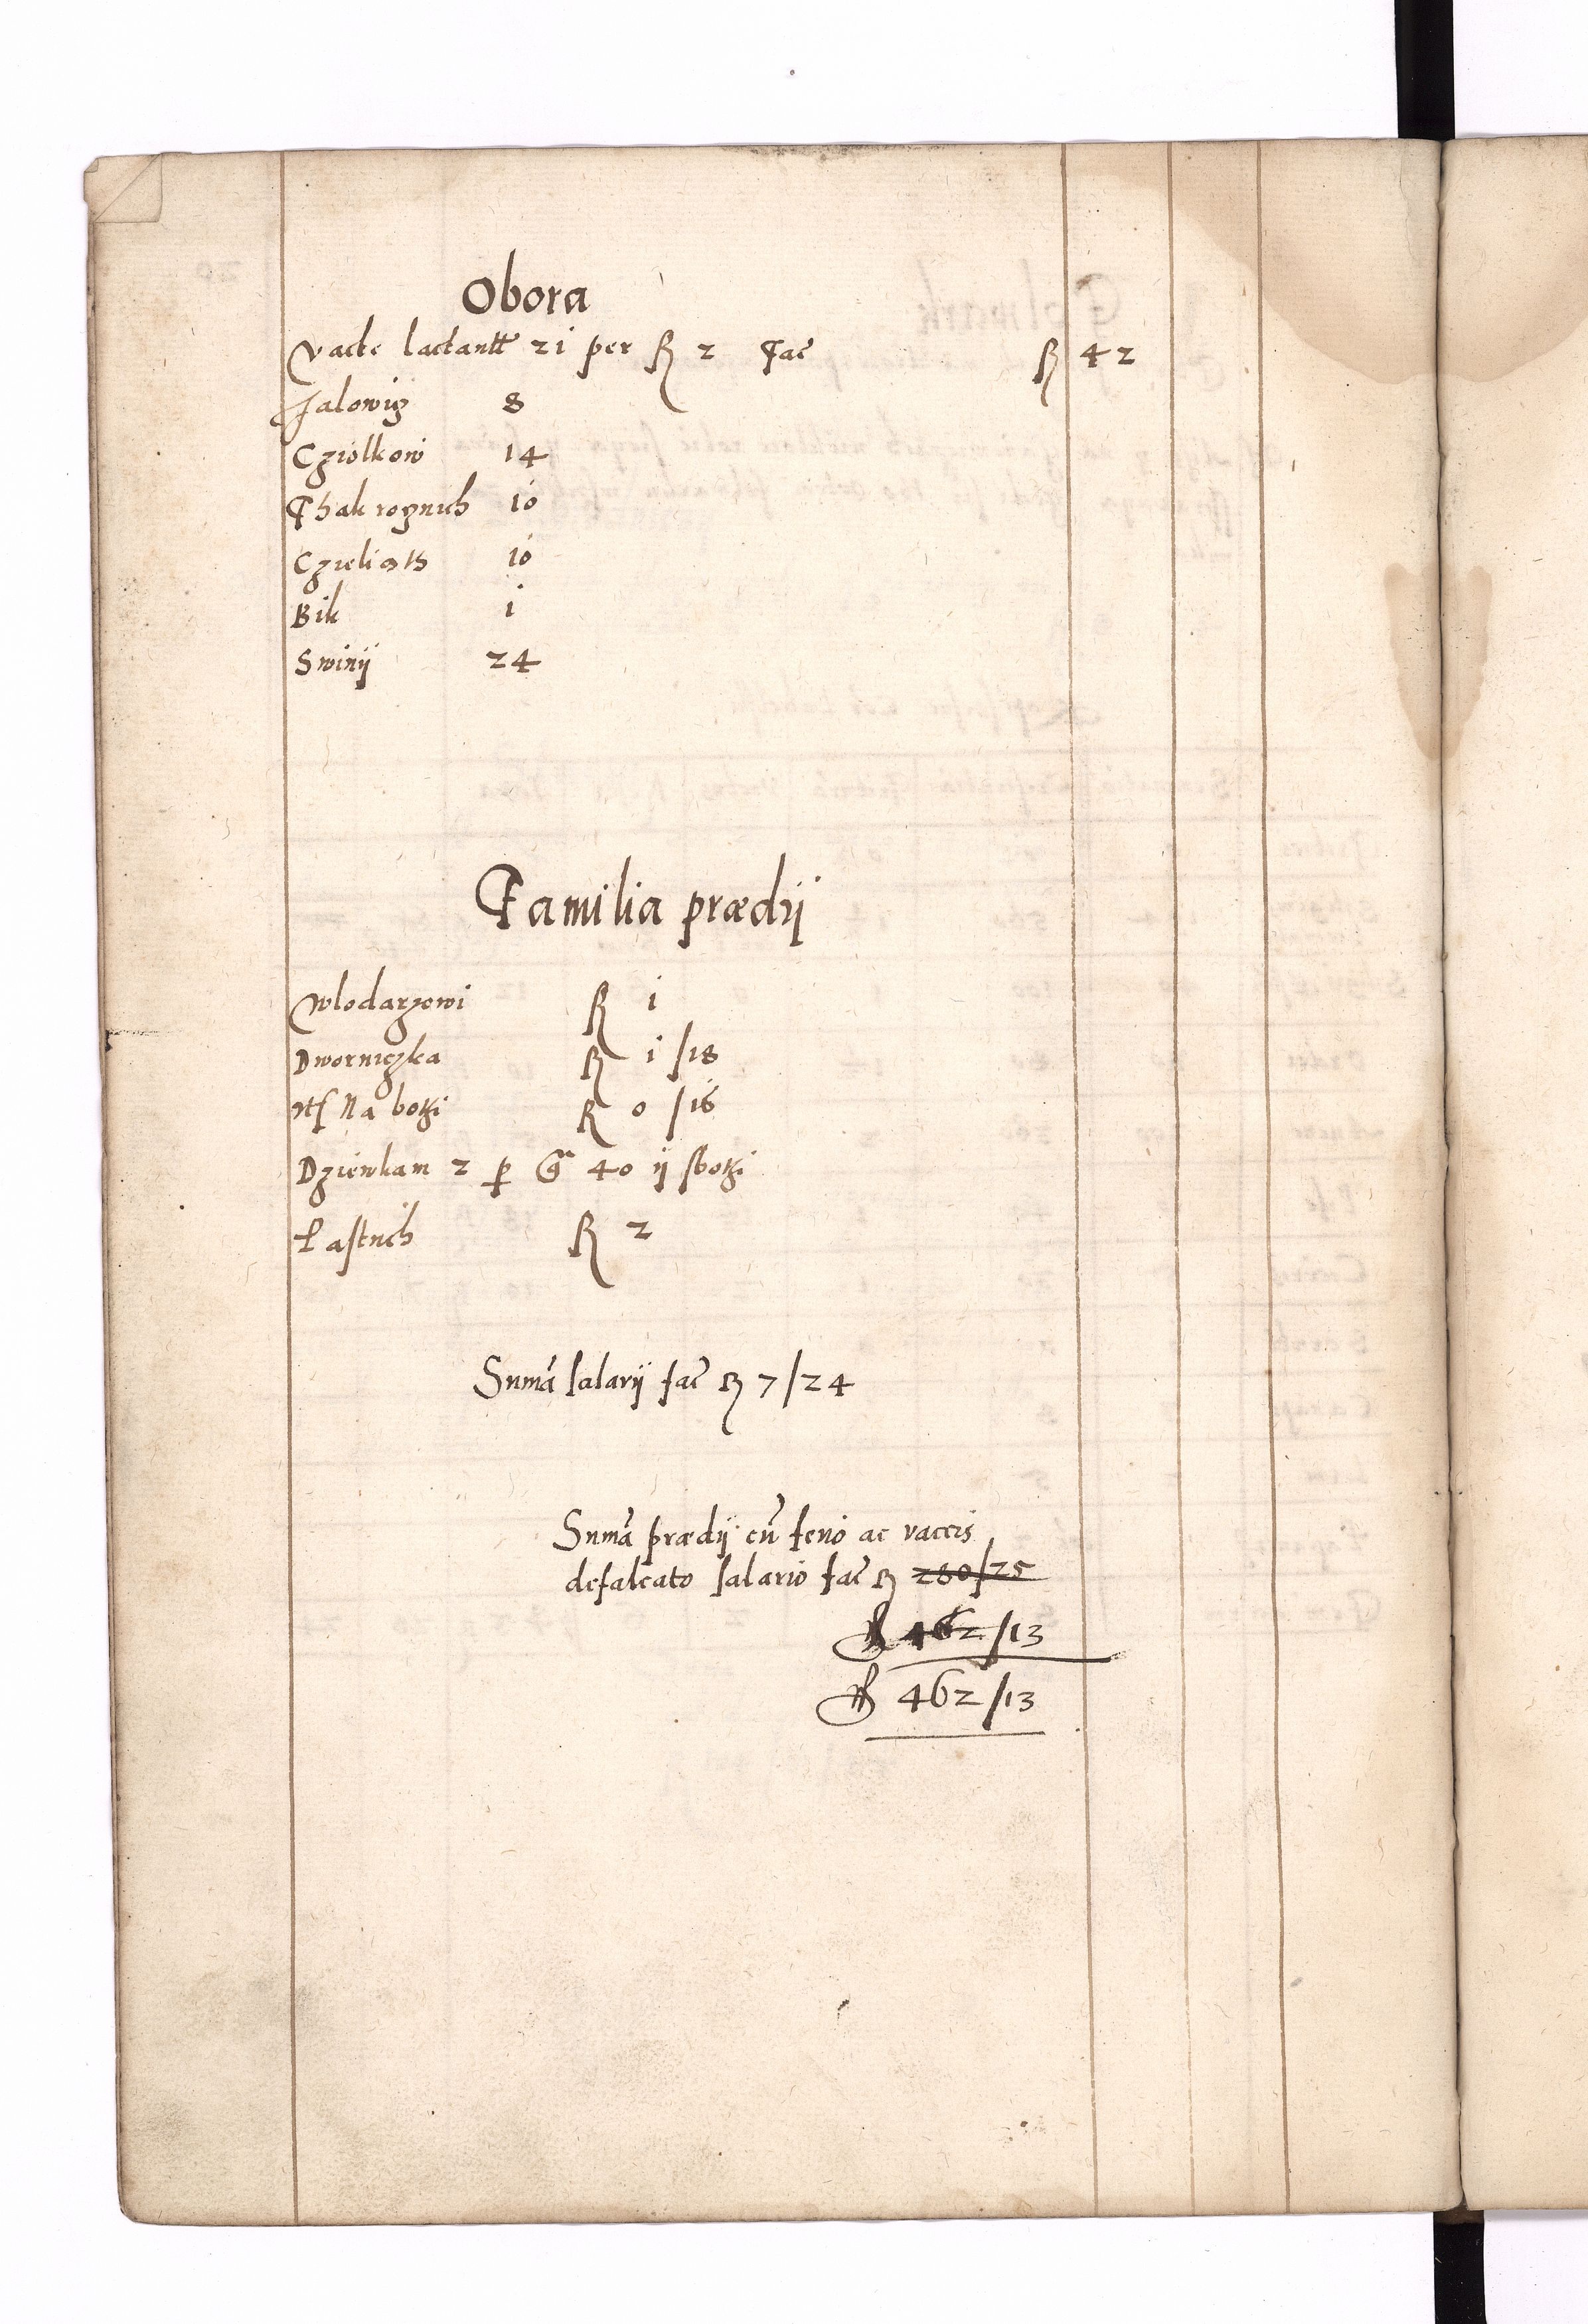 Obora
Vacce lactantt 21 per ß 2 Fac ß 42
Jalowiz 8
Cziolkow 14
Thak rocznich 10
Czieliath 10
Bik 1
Swinij 24
Familia prædij
Wlodarzowi ß 1
Dworniczka ß 1 /18
Na bothi ß 0 /16
Dziewkam 2 p g 40 ij sbothi
Pastuch ß 2
Suma salarij fac ß 7/24
Suma prædij cu feno ac vaccis
defalcato salario fac ß 280/25
ß 462/13
ß 462/13